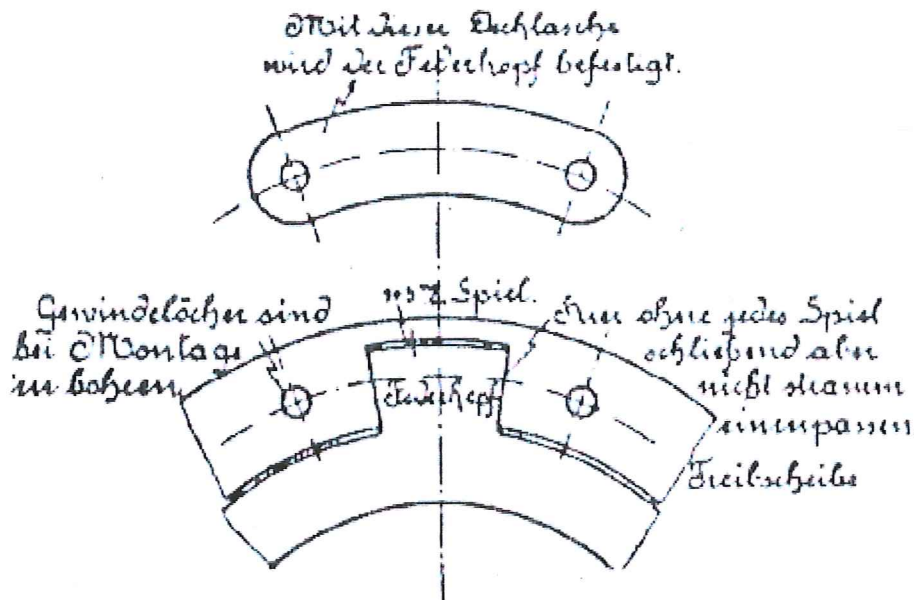 Mit dieser Decklasche
wird der Federkopf befestigt.
Gewindelöcher sind
bei Montage
zu bohren
Spiel.
Hier ohne jedes Spiel
schließend aber
nicht stramm
einzupassen
Federkopf
Treibscheibe